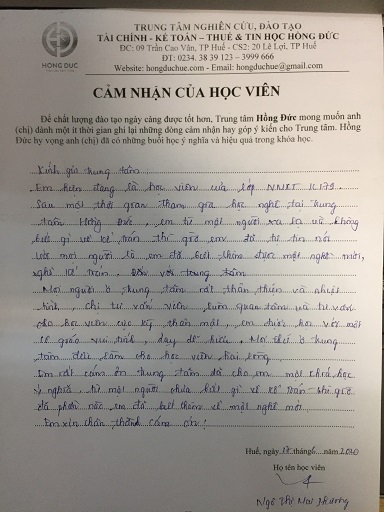 HONG DUC
TRUNG TÂM NGHIÊN CỨU, ĐÀO TẠO
TÀI CHÍNH - KẾ TOÁN - THUẾ & TIN HỌC HỒNG ĐỨC
ĐC: 09 Trần Cao Vân, TP Huế - CS2: 20 Lê Lợi, TP Huế
ĐT: 0234. 38 39 123 - 3999 666
Website: hongduchue.com - Email: hongduchue@gmail.com
CẢM NHẬN CỦA HỌC VIÊN
Để chất lượng đào tạo ngày càng được tốt hơn, Trung tâm Hồng Đức mong muốn anh
(chị) dành một ít thời gian ghi lại những dòng cảm nhận hay góp ý kiến cho Trung tâm. Hồng
Đức hy vọng anh (chị) đã có những buổi học ý nghĩa và hiệu quả trong khóa học.
Kính gửi trung tâm
Em hiện đang là học viên của lớp NNKT K179
Sau một thời gian tham gia học nghề tại trung
tâm Hồng Đức, em từ một người xa lạ và không
biết gì về kế toán thì giờ em đã tự tin nói
với mọi người là em đã biết thêm được một nghề mới,
nghề kế toán. Đến với trung tâm
Mọi người ở trung tâm rất thân thiện và nhiệt
tình, chị tư vấn viên luôn quan tâm và tư vấn
cho học viên cực kỳ thân mật, em được học với một
cô giáo vui tính, dạy dễ hiểu. Mọi thứ ở trung
tâm đều làm cho học viên hài lòng.
Em rất cảm ơn trung tâm đã cho em một khóa học
ý nghĩa, từ một người chưa biết gì về kế toán thì giờ
đã phần nào em đã biết thêm về một nghề mới.
Em xin chân thành cảm ơn!
Huế, ngày 17 tháng 6 năm 2020
Họ tên học viên
Ngô Thị Mai Hương